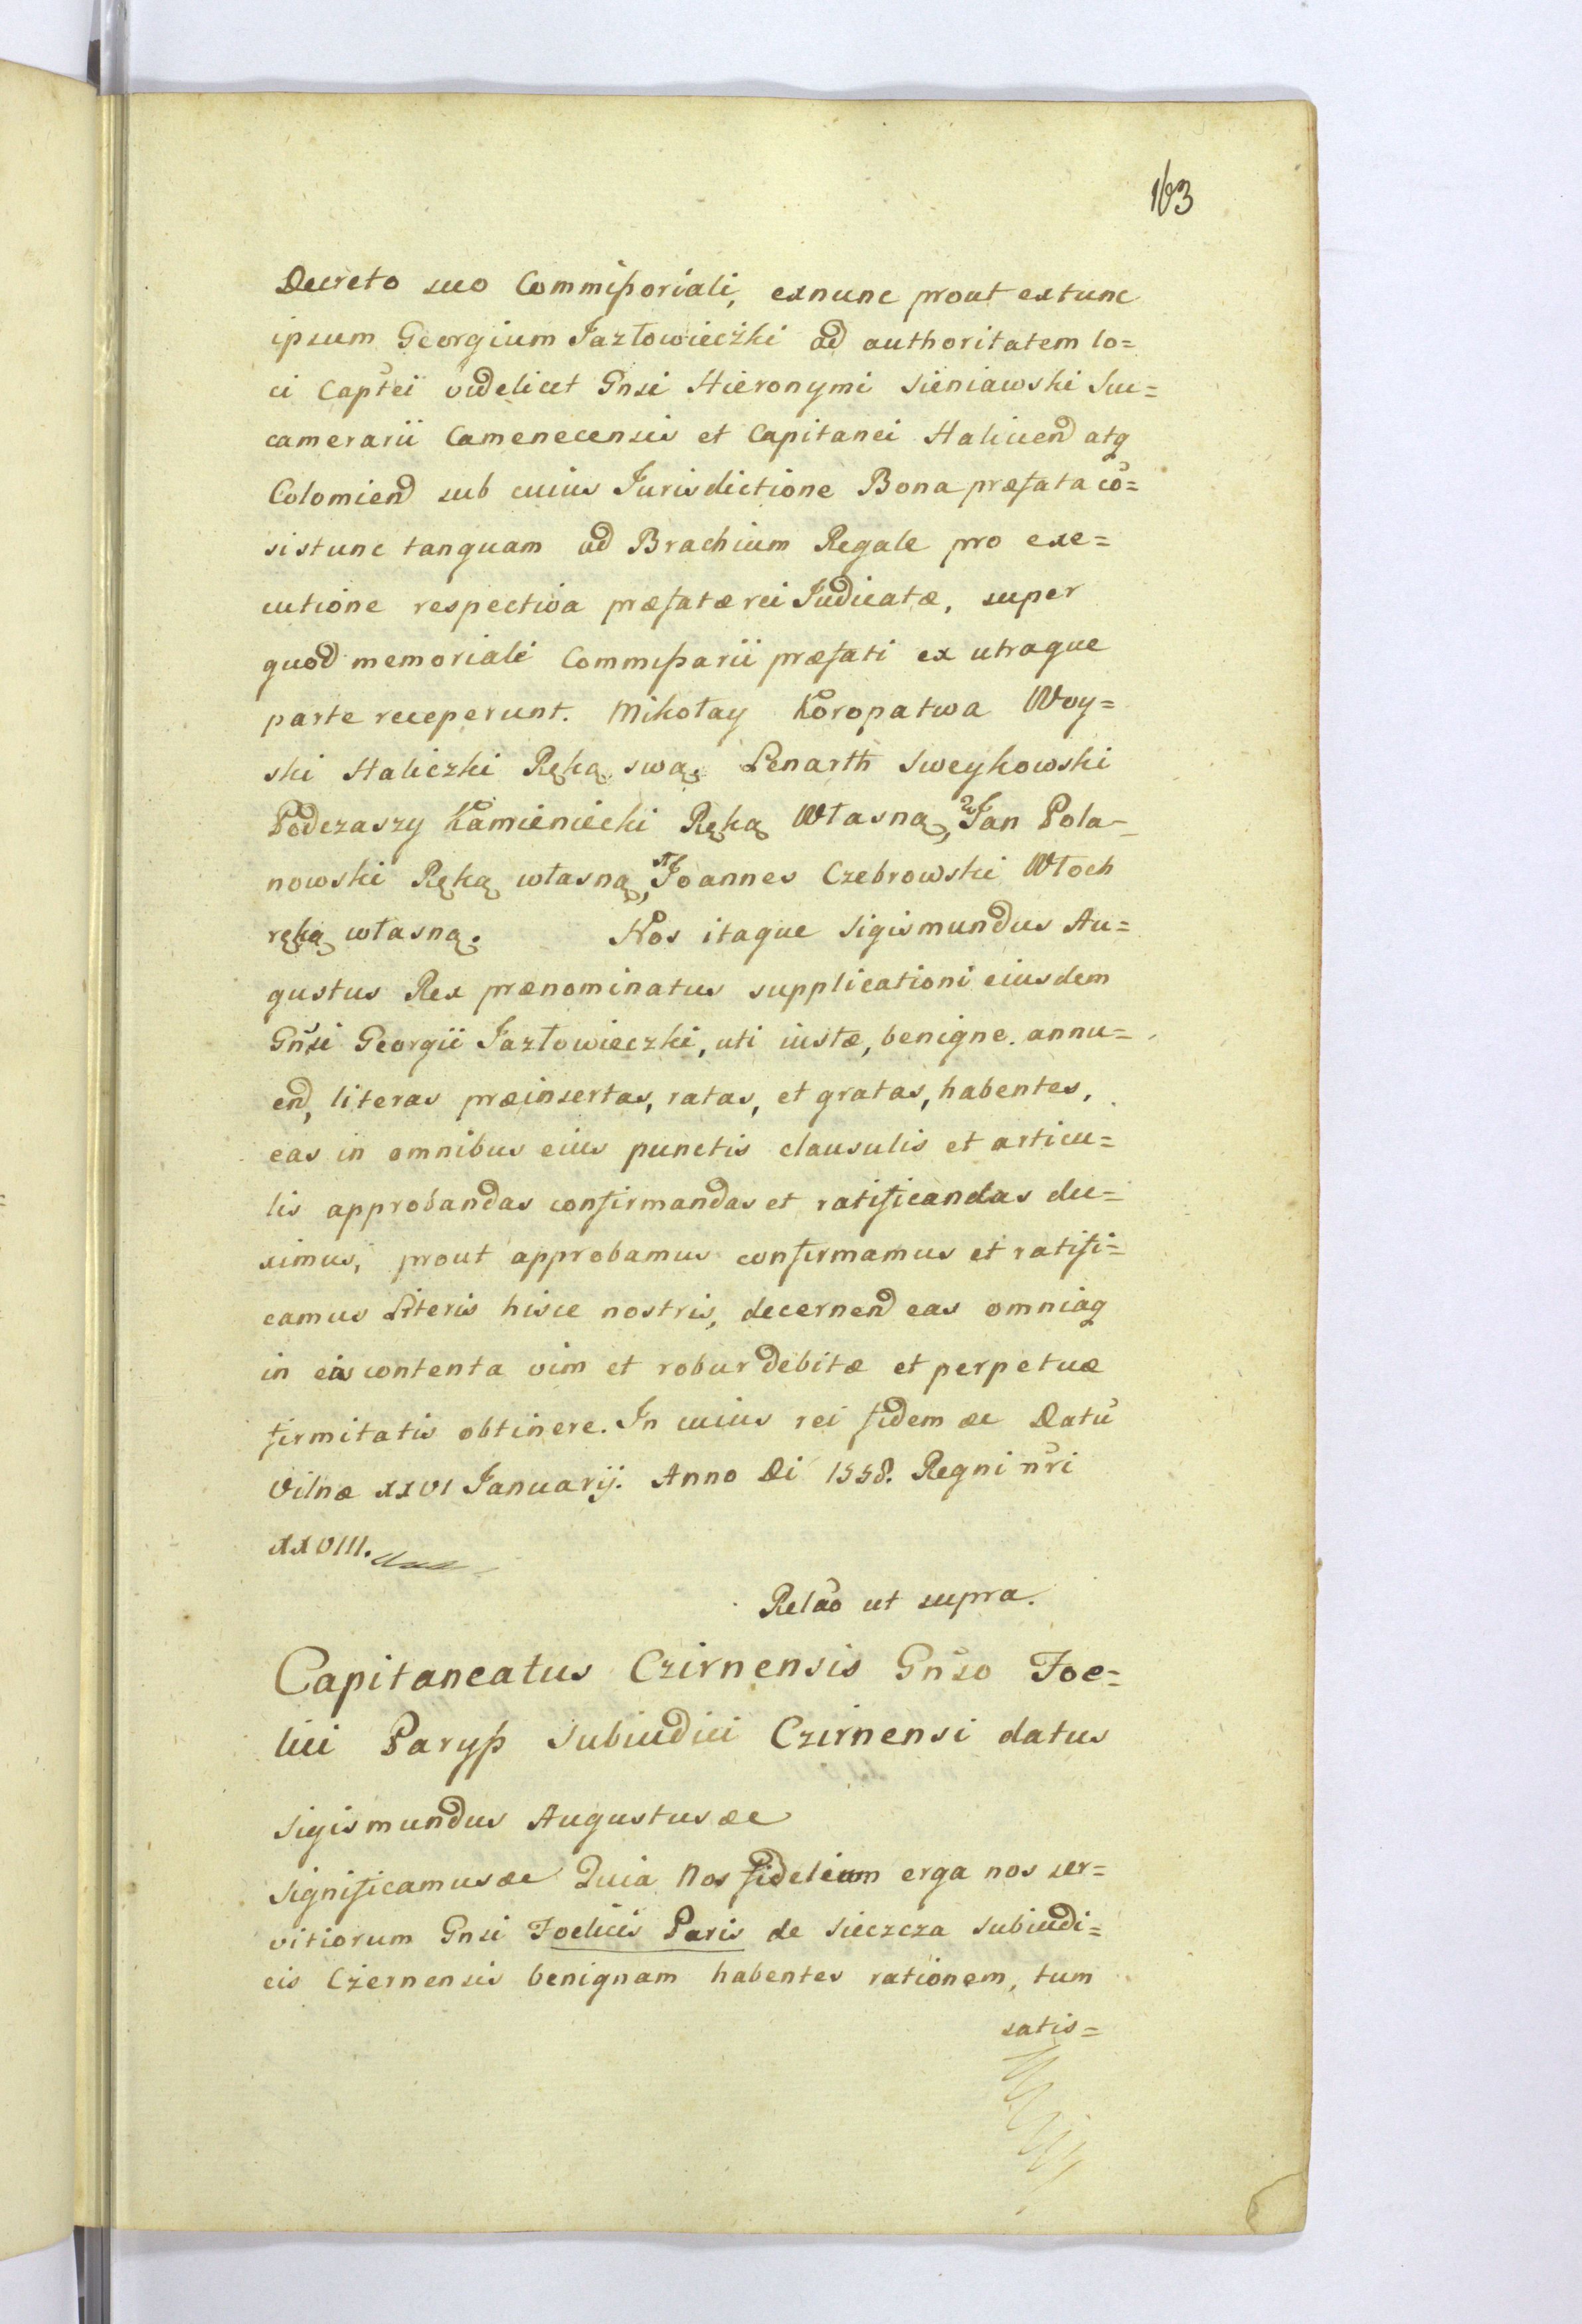 163
Decreto suo Commißoriali, exnunc prout extunc
ipsum Georgium Jazłowieczki ad authoritatem lo=
ci Captei videlicet Gnsi Hieronymi Sieniawski Suc=
camerarii Camenecensis et Capitanei Halicen atq
Colomien sub cuius Jurisdictione Bona præfata cõ=
sistunt tanquam ad Brachium Regale pro exe=
cutione respectiva præfatæ rei Judicatæ, super
quod memoriale Commißarii præfati ex utraque
parte receperunt. Mikołay Koropatwa Woy=
ski Haliczki Ręką swą. Lenarth Sweykowski
Podczaszy Kamieniecki Ręką Własną, Jan Pola=
nowski Ręką własną, Joannes Czebrowski Włoch
ręką własną. Nos itaque Sigismundus Au=
gustus Rex prænominatus supplicationi eiusdem
Gnsi Georgii Jazłowieczki, uti iustæ, benigne annu=
en, literas præinsertas, ratas, et gratas, habentes,
eas in omnibus eius punctis clausulis et articu=
lis approbandas confirmandas et ratificandas du=
ximus, prout approbamus confirmamus et ratifi=
camus Literis hisce nostris, decernen eas omniaq
in eis contenta vim et robur debitæ et perpetuæ
firmitatis obtinere. In cuius rei fidem æc Datũ
Vilnæ XXVI Januarij. Anno Di 1558. Regni nri
XXVIII.
Relao ut supra.
Capitaneatus Czirnensis Gnso Foe=
lici Paryß Subiudici Czirnensi datus
Sigismundus Augustus æc
Significamus æc Quia Nos fidelium erga nos ser=
vitiorum Gnsi Foelicis Paris de Sieczcza Subiudi=
cis Czernensis benignam habentes rationem, tum
satis=